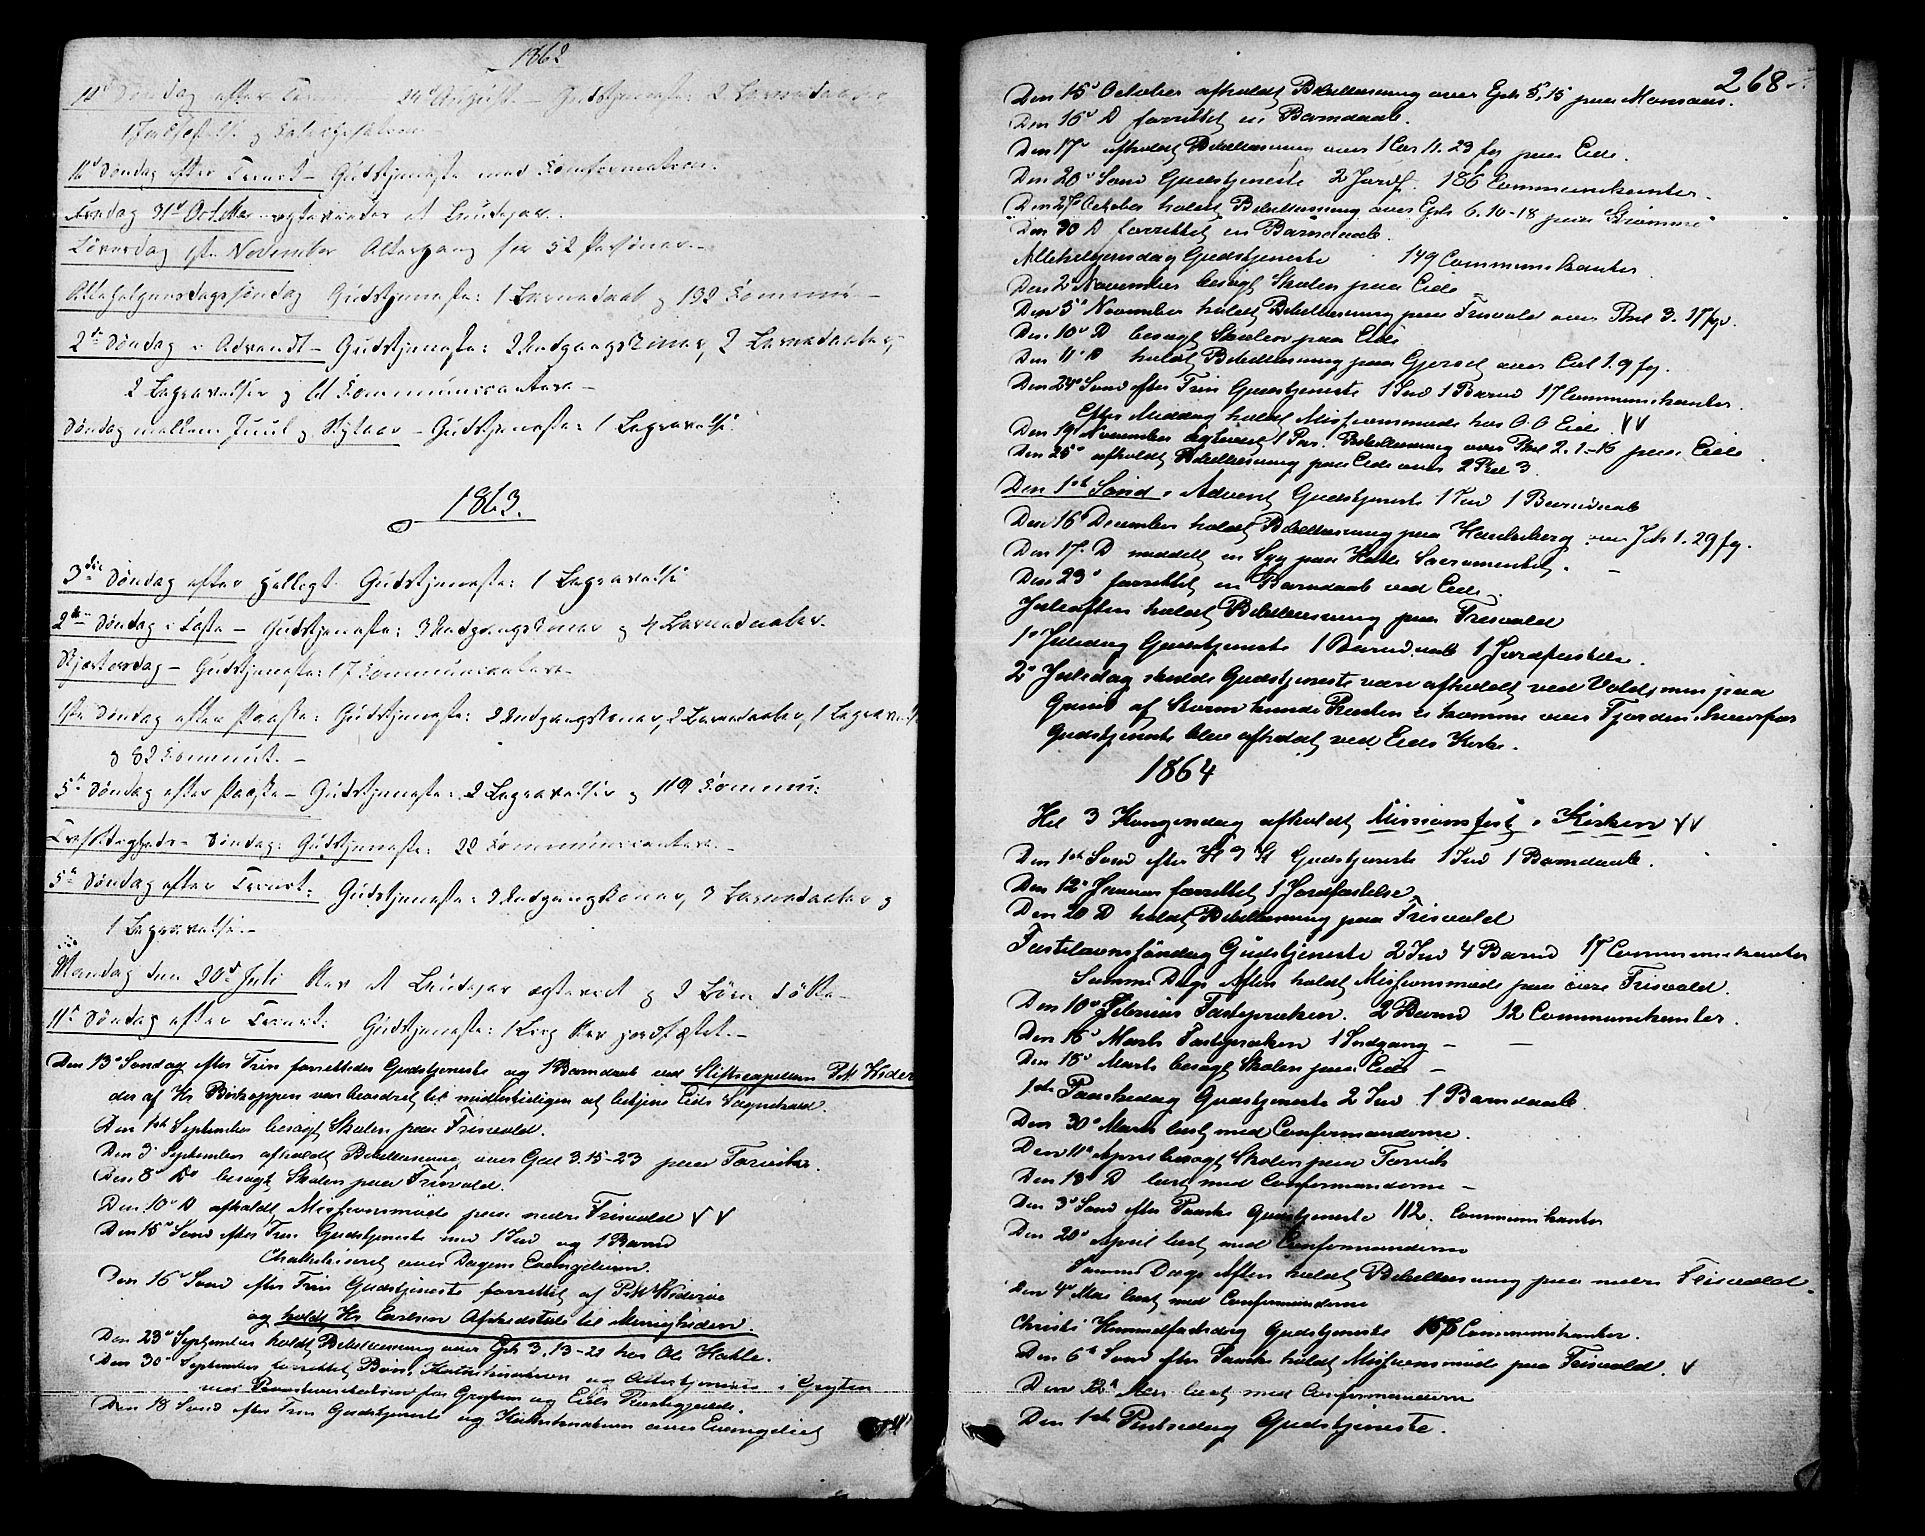 1862
Søndag efter Trinit. 24 August – Gudstjeneste: 2 Barnedaaber
1 Jordfæstelse og Catechisation
Søndag efter Trinit – Gudstjeneste med Confirmation.
Fredag 31te October ægteviedes et Brudepar.
Løverdag 1ste November Altergang for 52 Personer.
Allehelgensdagssøndag Gudstjeneste: 1 Barnedaab og 132 Commun. –
2den Søndag i Advendt – Gudstjeneste: 2 Indgangskoner, 2 Barnedaaber,
2 Begravelser og Communicantere –
Søndag mellem Juul og Nytaar – Gudstjeneste: 1 Begravelse
1863.
3die Søndag efter Hellegt. Gudstjeneste: 1 Begravelse
2den Søndag i Faste – Gudstjeneste: 3 Indgangskoner og 4 Barnedaaber.
Skjertorsdag – Gudstjeneste: 17 Communicantere
1ste Søndag efter Paaske: Gudstjeneste: 2 Indgangskoner, 2 Barnedaaber, 1 Begravelse
og 82 Commun. –
5te Søndag efter Paaske – Gudstjeneste: 2 Begravelser og 119 Commun:
Trefoldigheds-Søndag: Gudstjeneste: 22 Communicantere. –
5te Søndag efter Trinit: Gudstjeneste: 3 Indgangskoner, 3 Barnedaaber og
1 Begravelse. –
Mandag den 20de Juli blev et Brudepar ægteviet og 2 Børn døbte –
11te Søndag efter Trinit: Gudstjeneste: 1 Liig blev jordfæstet. –
Den 13de Søndag efter Trin forrettedes Gudstjeneste og 1 Barndaab ved Stiftscapellan P. M. Kider
der af Hr Biskoppen var beordret til midlertidigen at betjene Eids Sognekald.
Den 1ste September besøgt Skolen paa Frisvold.
Den 3de September afholdt Bibellæsning over Gal 3.15-23 paa Torvik.
Den 8de Do besøgt Skolen paa Frisvold.
Den 10de D afholdt Missionsmøde paa nedre Frisvold
Den 15de Sønd efter Trin Gudstjeneste med 1 Ind og 1 Barnd
Chatekiseret over Dagens Evangelium.
Den 16de Sønd efter Trin Gudstjeneste forrettet af P. M.
og holdt Hr Carlsen Afskedstale til Menigheden.
Den 23de September holdt Bibellæsning over Eph 3,13-21 hos Ole Hatle.
Den 30te September forrettet Bøn, Katekisation og i Grytten
ved for Grytten og Eids Præstegjelde.
Den 18 Sønd efter Trin Gudstjeneste og Katekisation over Evangeliet
268
Den 15de October afholdt Bibellæsning over Eph 5,15 paa Monsaas.
Den 16de D forrettet en Barndaab.
Den 17de afholdt Bibellæsning over 1 Cor 11.23 fg paa Eide.
Den 20de Sønd Gudstjeneste 2 Jordf. 186 Communikanter
Den 27de October holdt Bibellæsning over Eph 6.10-18 paa
Den 30 D forrettet en Barndaab.
Allehelgensdag Gudstjeneste 149 Communikanter.
Den 2de November besøgt Skolen paa Eide
Den 5te November holdt Bibellæsning paa Frisvold over Phil 3. 17 fg.
Den 10de D besøgt Skolen paa Eide
Den 11te D holdt Bibellæsning paa Gjerset over Col 1.9 fg.
Den 24de Sønd efter Trin Gudstjeneste 1 Ind 1 Barnd 17 Communikanter.
Efter Middag holdt Missionsmøde hos O. O Eide
Den 19de November ægteviet 1 Par. Bibellæsning over Phil 2.1-16 paa Eide.
Den 25de afholdt Bibellæsning paa Eide over 3
Den 1ste Sønd i Advent Gudstjeneste 1 Ind 1 Barndaab
Den 16de December holdt Bibellæsning paa over Joh 1.29 fg.
Den 17. D meddelt en Syg paa Hatle Sacramentet.
Den 23de forrettet en Barndaab ved Eide.
Juleaften holdt Bibellæsning paa Frisvold
1ste Juledag Gudstjeneste 1 Barndaab 1 Jordfæstelse.
2den Juledag skulde Gudstjeneste være afholdt ved Vold, men paa
Grund af Storm kunde Præsten ei komme over Fjorden, hvorfor
Gudstjeneste blev afholdt ved Eids Kirke.
1864
Hel 3 Kongersdag afholdt Missionsfest i Kirken
Den 1ste Sønd efter H 3 K Gudstjeneste 1 Ind 1 Barndaab.
Den 12te Januar forrettet 1 Jordfæstelse
Den 20 D holdt Bibellæsning paa Frisvold
Fastelavnssøndag Gudstjeneste 2 Ind 4 Barnd 17 Communikanter
Samme Dags Aften holdt Missionsmøde paa øvre Frisvold.
Den 10de Februar Fastepræken. 2 Barnd 12 Communikanter.
Den 16de Marts Fastepræken 1 Indgang –
Den 18de Marts besøgt Skolen paa Eide –
1ste Paaskedag Gudstjeneste 2 Ind 1 Barndaab
Den 30te Marts læst med Confirmanderne.
Den 11te April besøgt Skolen paa Torvik
Den 13de D læst med Confirmanderne –
Den 3de Sønd efter Paaske Gudstjeneste 112. Communikanter
Den 20de April læst med Confirmanderne
Samme Dags Aften holdt Bibellæsning paa nedre Frisvold.
Den 4de Mai læst med Confirmanderne
Christi Himmelfartsdag Gudstjeneste Communikanter.
Den 6te Sønd efter Paaske holdt Missionsmøde paa Frisvold.
Den 12te Mai læst med Confirmanderne
Den 1ste Pintsedag Gudstjeneste.